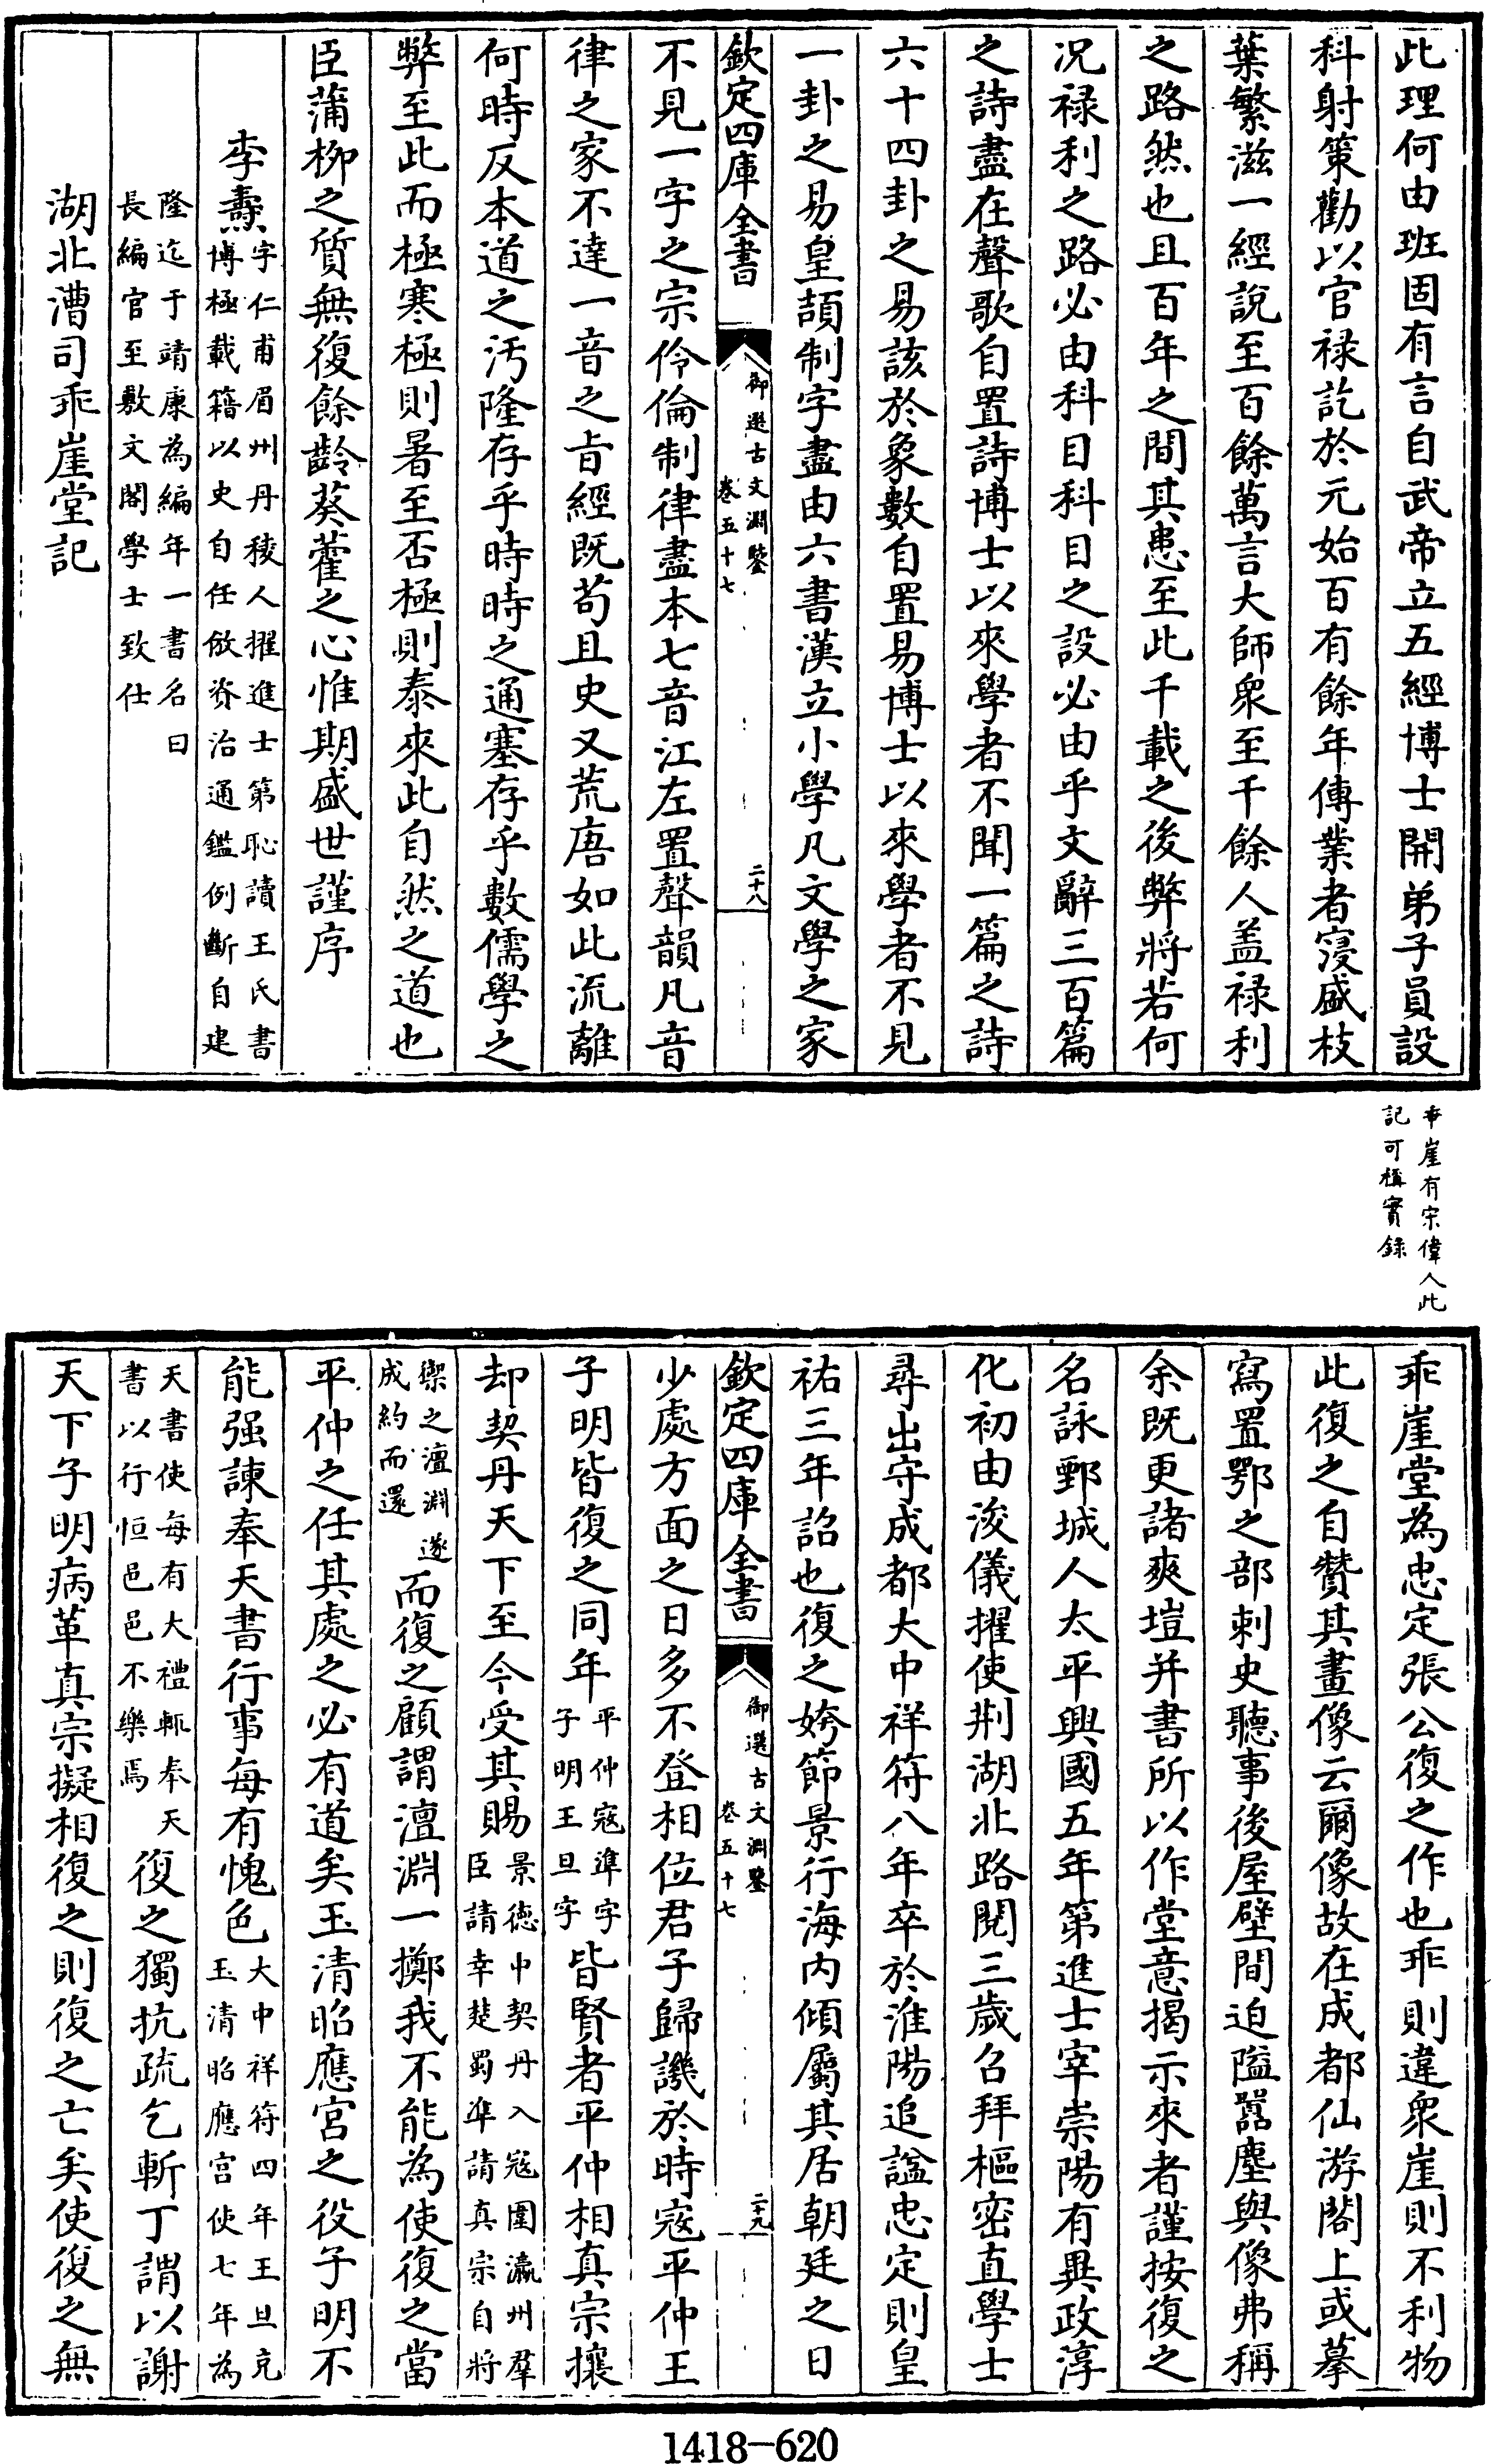 此理何由班固有言自武帝立五經博士開弟子員設
科射策勸以官祿訖於元始百有餘年傳業者寖盛枝
葉繁滋一經說至百餘萬言大師衆至千餘人盖祿利
之路然也且百年之間其患至此千載之後弊將若何
况祿利之路必由科目科目之設必由乎文辭三百篇
之詩盡在聲歌自置詩博士以來學者不聞一篇之詩
六十四卦之易該於象數自置易博士以來學者不見
一卦之易皇頡制字盡由六書漢立小學凡文學之家
欽定四庫全書
御選古文淵鑒
卷五十七
二十八
不見一字之宗伶倫制律盡本七音江左置聲韻凡音
律之家不達一音之旨經既苟且史又荒唐如此流離
何時反本道之汚隆存乎時時之通塞存乎數儒學之
弊至此而極寒極則暑至否極則泰來此自然之道也
臣蒲柳之質無復餘齡葵藿之心惟期盛世謹序
李燾字仁甫眉州丹稜人擢進士第恥讀王氏書
博極載籍以史自任倣資治通鑑例斷自建
隆迄于靖康為編年一書名曰
長編官至敷文閣學士致仕
湖北漕司乖崖堂記
乖崖有宋偉人此
記可稱實錄
乖崖堂為忠定張公復之作也乖則違衆崖則不利物
此復之自贊其畫像云爾像故在成都仙游閣上或摹
寫置鄂之部刺史聽事後屋壁間迫隘嚣塵與像弗稱
余既更諸爽塏并書所以作堂意揭示來者謹按復之
名詠鄄城人太平興國五年第進士宰崇陽有異政淳
化初由浚儀擢使荆湖北路閱三歲召拜樞密直學士
尋出守成都大中祥符八年卒於淮陽追諡忠定則皇
祐三年詔也復之姱節景行海内傾屬其居朝廷之日
欽定四庫全書
御選古文淵鑒
卷五十七
二十九
少處方面之日多不登相位君子歸譏於時寇平仲王
子明皆復之同年平仲寇準字
子明王旦字皆賢者平仲相真宗攘
却契丹天下至今受其賜景德中契丹入寇圍瀛州羣
臣請幸楚蜀準請真宗自將
禦之澶淵遂
成約而還而復之顧謂澶淵一擲我不能為使復之當
平仲之任其處之必有道矣玉清昭應宮之役子明不
能强諫奉天書行事每有愧色大中祥符四年王旦充
玉清昭應宮使七年為
天書使每有大禮輒奉天
書以行恒邑邑不樂焉復之獨抗疏乞斬丁謂以謝
天下子明病革真宗擬相復之則復之亡矣使復之無
1418-620